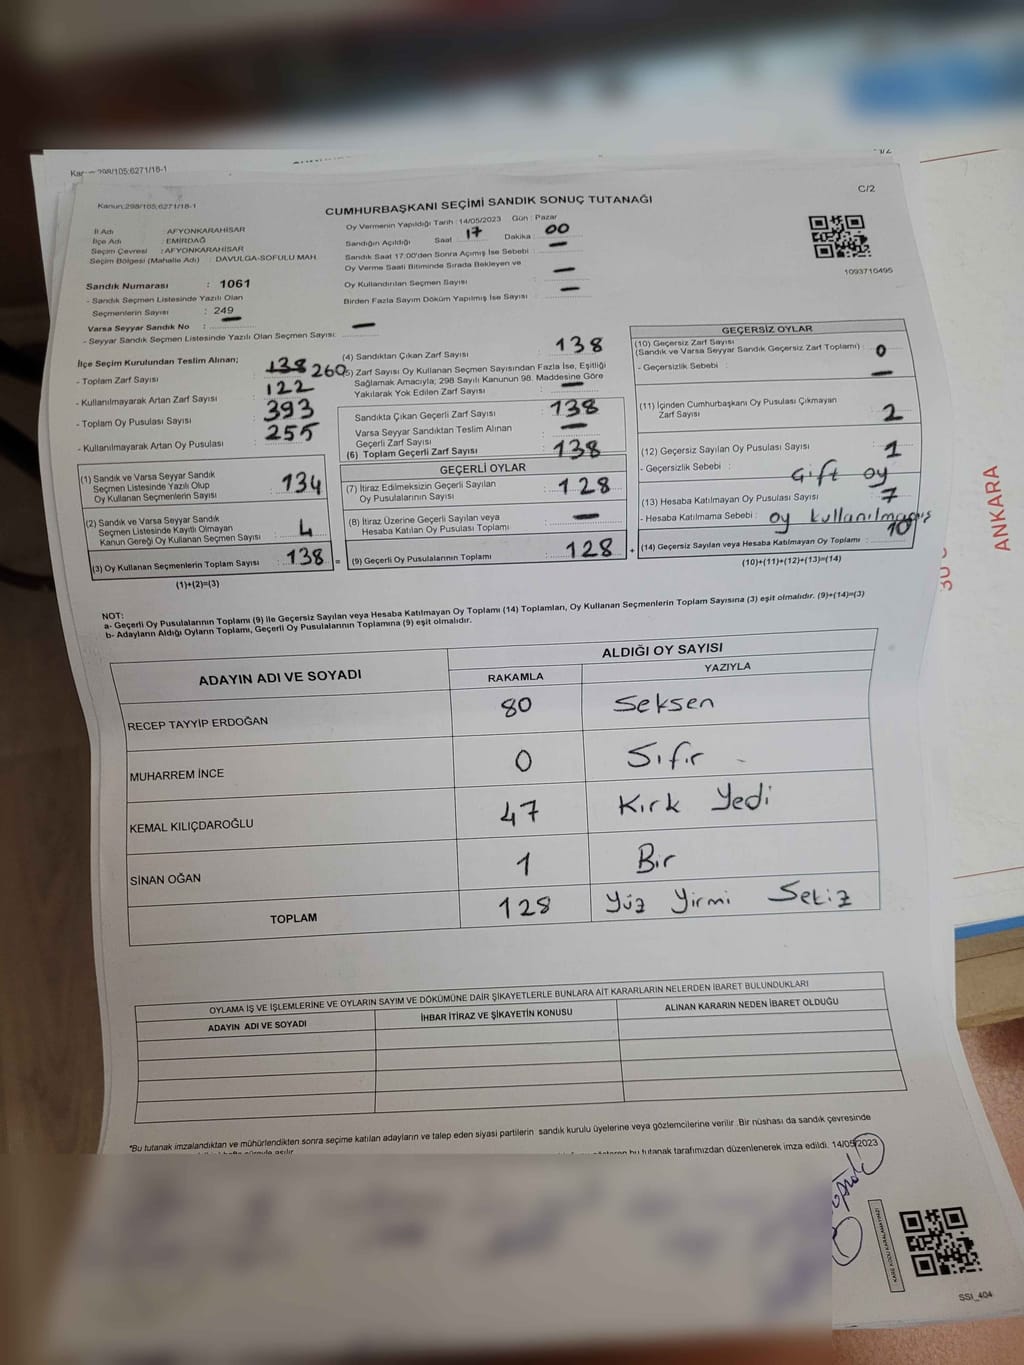 Kanun:298/105;6271/18-1
C/2
CUMHURBAŞKANI SEÇİMİ SANDIK SONUÇ TUTANAĞI
İl Adı : AFYONKARAHİSAR
İlçe Adı : EMİRDAĞ
Seçim Çevresi : AFYONKARAHİSAR
Seçim Bölgesi (Mahalle Adı) : DAVULGA-SOFULU MAH.
Sandık Numarası : 1061
- Sandık Seçmen Listesinde Yazılı Olan
Seçmenlerin Sayısı : 249
Varsa Seyyar Sandık No : —
- Seyyar Sandık Seçmen Listesinde Yazılı Olan Seçmen Sayısı: —
Oy Vermenin Yapıldığı Tarih : 14/05/2023 Gün : Pazar
Sandığın Açıldığı Saat 17 Dakika 00
Sandık Saat 17:00'den Sonra Açımış İse Sebebi : —
Oy Verme Saati Bitiminde Sırada Bekleyen ve
Oy Kullandırılan Seçmen Sayısı : —
Birden Fazla Sayım Döküm Yapılmış İse Sayısı : —
1093710495
İlçe Seçim Kurulundan Teslim Alınan;
- Toplam Zarf Sayısı 138 260
- Kullanılmayarak Artan Zarf Sayısı : 122
- Toplam Oy Pusulası Sayısı : 393
- Kullanılmayarak Artan Oy Pusulası : 255
(1) Sandık ve Varsa Seyyar Sandık
Seçmen Listesinde Yazılı Olup
Oy Kullanan Seçmenlerin Sayısı : 134
(2) Sandık ve Varsa Seyyar Sandık
Seçmen Listesinde Kayıtlı Olmayan
Kanun Gereği Oy Kullanan Seçmen Sayısı : 4
(3) Oy Kullanan Seçmenlerin Toplam Sayısı : 138
(1)+(2)=(3)
(4) Sandıktan Çıkan Zarf Sayısı : 138
(5) Zarf Sayısı Oy Kullanan Seçmen Sayısından Fazla İse, Eşitliği
Sağlamak Amacıyla; 298 Sayılı Kanunun 98. Maddesine Göre
Yakılarak Yok Edilen Zarf Sayısı : —
Sandıkta Çıkan Geçerli Zarf Sayısı : 138
Varsa Seyyar Sandıktan Teslim Alınan
Geçerli Zarf Sayısı : —
(6) Toplam Geçerli Zarf Sayısı : 138
GEÇERLİ OYLAR
(7) İtiraz Edilmeksizin Geçerli Sayılan
Oy Pusulalarının Sayısı : 128
(8) İtiraz Üzerine Geçerli Sayılan veya
Hesaba Katılan Oy Pusulası Toplamı : —
= (9) Geçerli Oy Pusulalarının Toplamı : 128
GEÇERSİZ OYLAR
(10) Geçersiz Zarf Sayısı
(Sandık ve Varsa Seyyar Sandık Geçersiz Zarf Toplamı) : 0
- Geçersizlik Sebebi : —
(11) İçinden Cumhurbaşkanı Oy Pusulası Çıkmayan
Zarf Sayısı : 2
(12) Geçersiz Sayılan Oy Pusulası Sayısı : 1
- Geçersizlik Sebebi : Gift oy
(13) Hesaba Katılmayan Oy Pusulası Sayısı : 7
- Hesaba Katılmama Sebebi : oy kullanılmamış
+ (14) Geçersiz Sayılan veya Hesaba Katılmayan Oy Toplamı : 10
(10)+(11)+(12)+(13)=(14)
NOT:
a- Geçerli Oy Pusulalarının Toplamı (9) ile Geçersiz Sayılan veya Hesaba Katılmayan Oy Toplamı (14) Toplamları, Oy Kullanan Seçmenlerin Toplam Sayısına (3) eşit olmalıdır. (9)+(14)=(3)
b- Adayların Aldığı Oyların Toplamı, Geçerli Oy Pusulalarının Toplamına (9) eşit olmalıdır.
ADAYIN ADI VE SOYADI
ALDIĞI OY SAYISI
RAKAMLA YAZIYLA
RECEP TAYYİP ERDOĞAN 80 Seksen
MUHARREM İNCE 0 Sıfır
KEMAL KILIÇDAROĞLU 47 Kırk Yedi
SİNAN OĞAN 1 Bir
TOPLAM 128 Yüz Yirmi Sekiz
OYLAMA İŞ VE İŞLEMLERİNE VE OYLARIN SAYIM VE DÖKÜMÜNE DAİR ŞİKAYETLERLE BUNLARA AİT KARARLARIN NELERDEN İBARET BULUNDUKLARI
ADAYIN ADI VE SOYADI İHBAR İTİRAZ VE ŞİKAYETİN KONUSU ALINAN KARARIN NEDEN İBARET OLDUĞU
*Bu tutanak imzalandıktan ve mühürlendikten sonra seçime katılan adayların ve talep eden siyasi partilerin sandık kurulu üyelerine veya gözlemcilerine verilir. Bir nüshası da sandık çevresinde
bu tutanak tarafımızdan düzenlenerek imza edildi. 14/05/2023
SSI_404
ANKARA